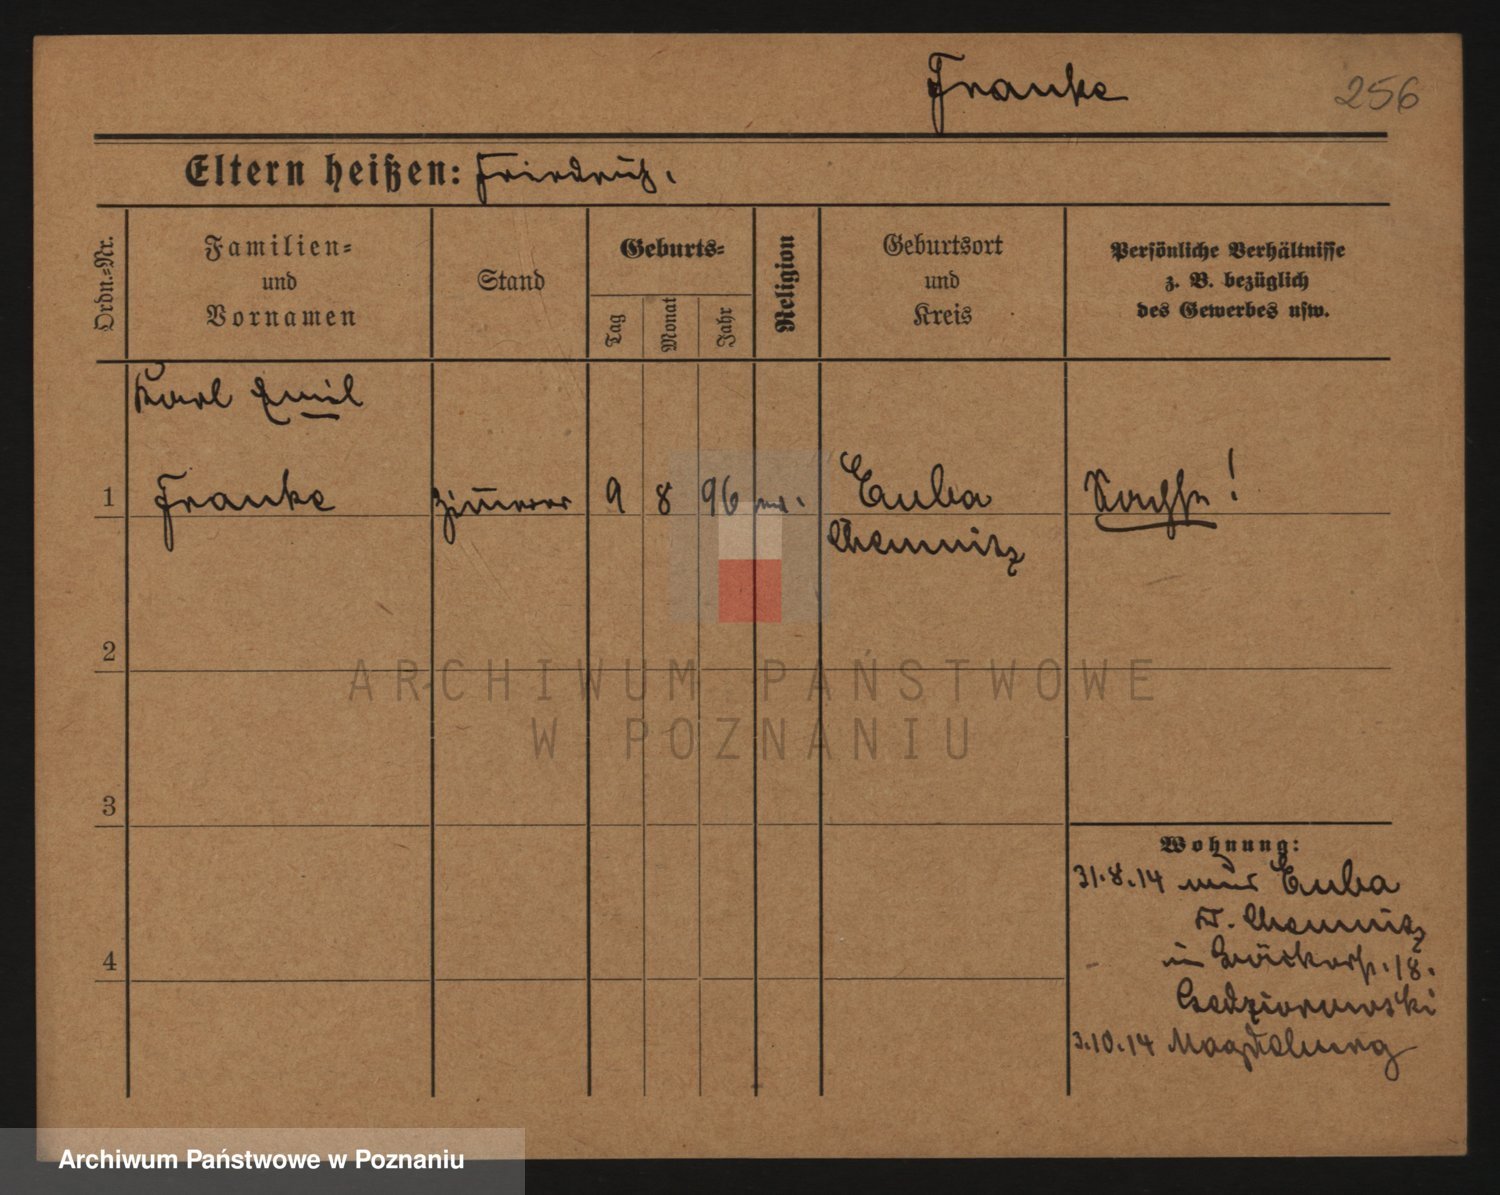 Franke
256
Eltern heißen: Friedrich.
Ordn.=Nr.
Familien=
und
Vornamen
Stand
Geburts=
Tag
Monat
Jahr
Religion
Geburtsort
und
Kreis
Persönliche Verhältnisse
z. B. bezüglich
des Gewerbes usw.
Karl Emil
1 Franke Zimmerer 9 8 96 Euba Sachse!
Chemnitz
2
3
4
Wohnung:
31.8.14 Euba
Chemnitz
in 18.
Cedziorowski
3.10.14 Magdeburg
ARCHIWUM PAŃSTWOWE
W POZNANIU
Archiwum Państwowe w Poznaniu